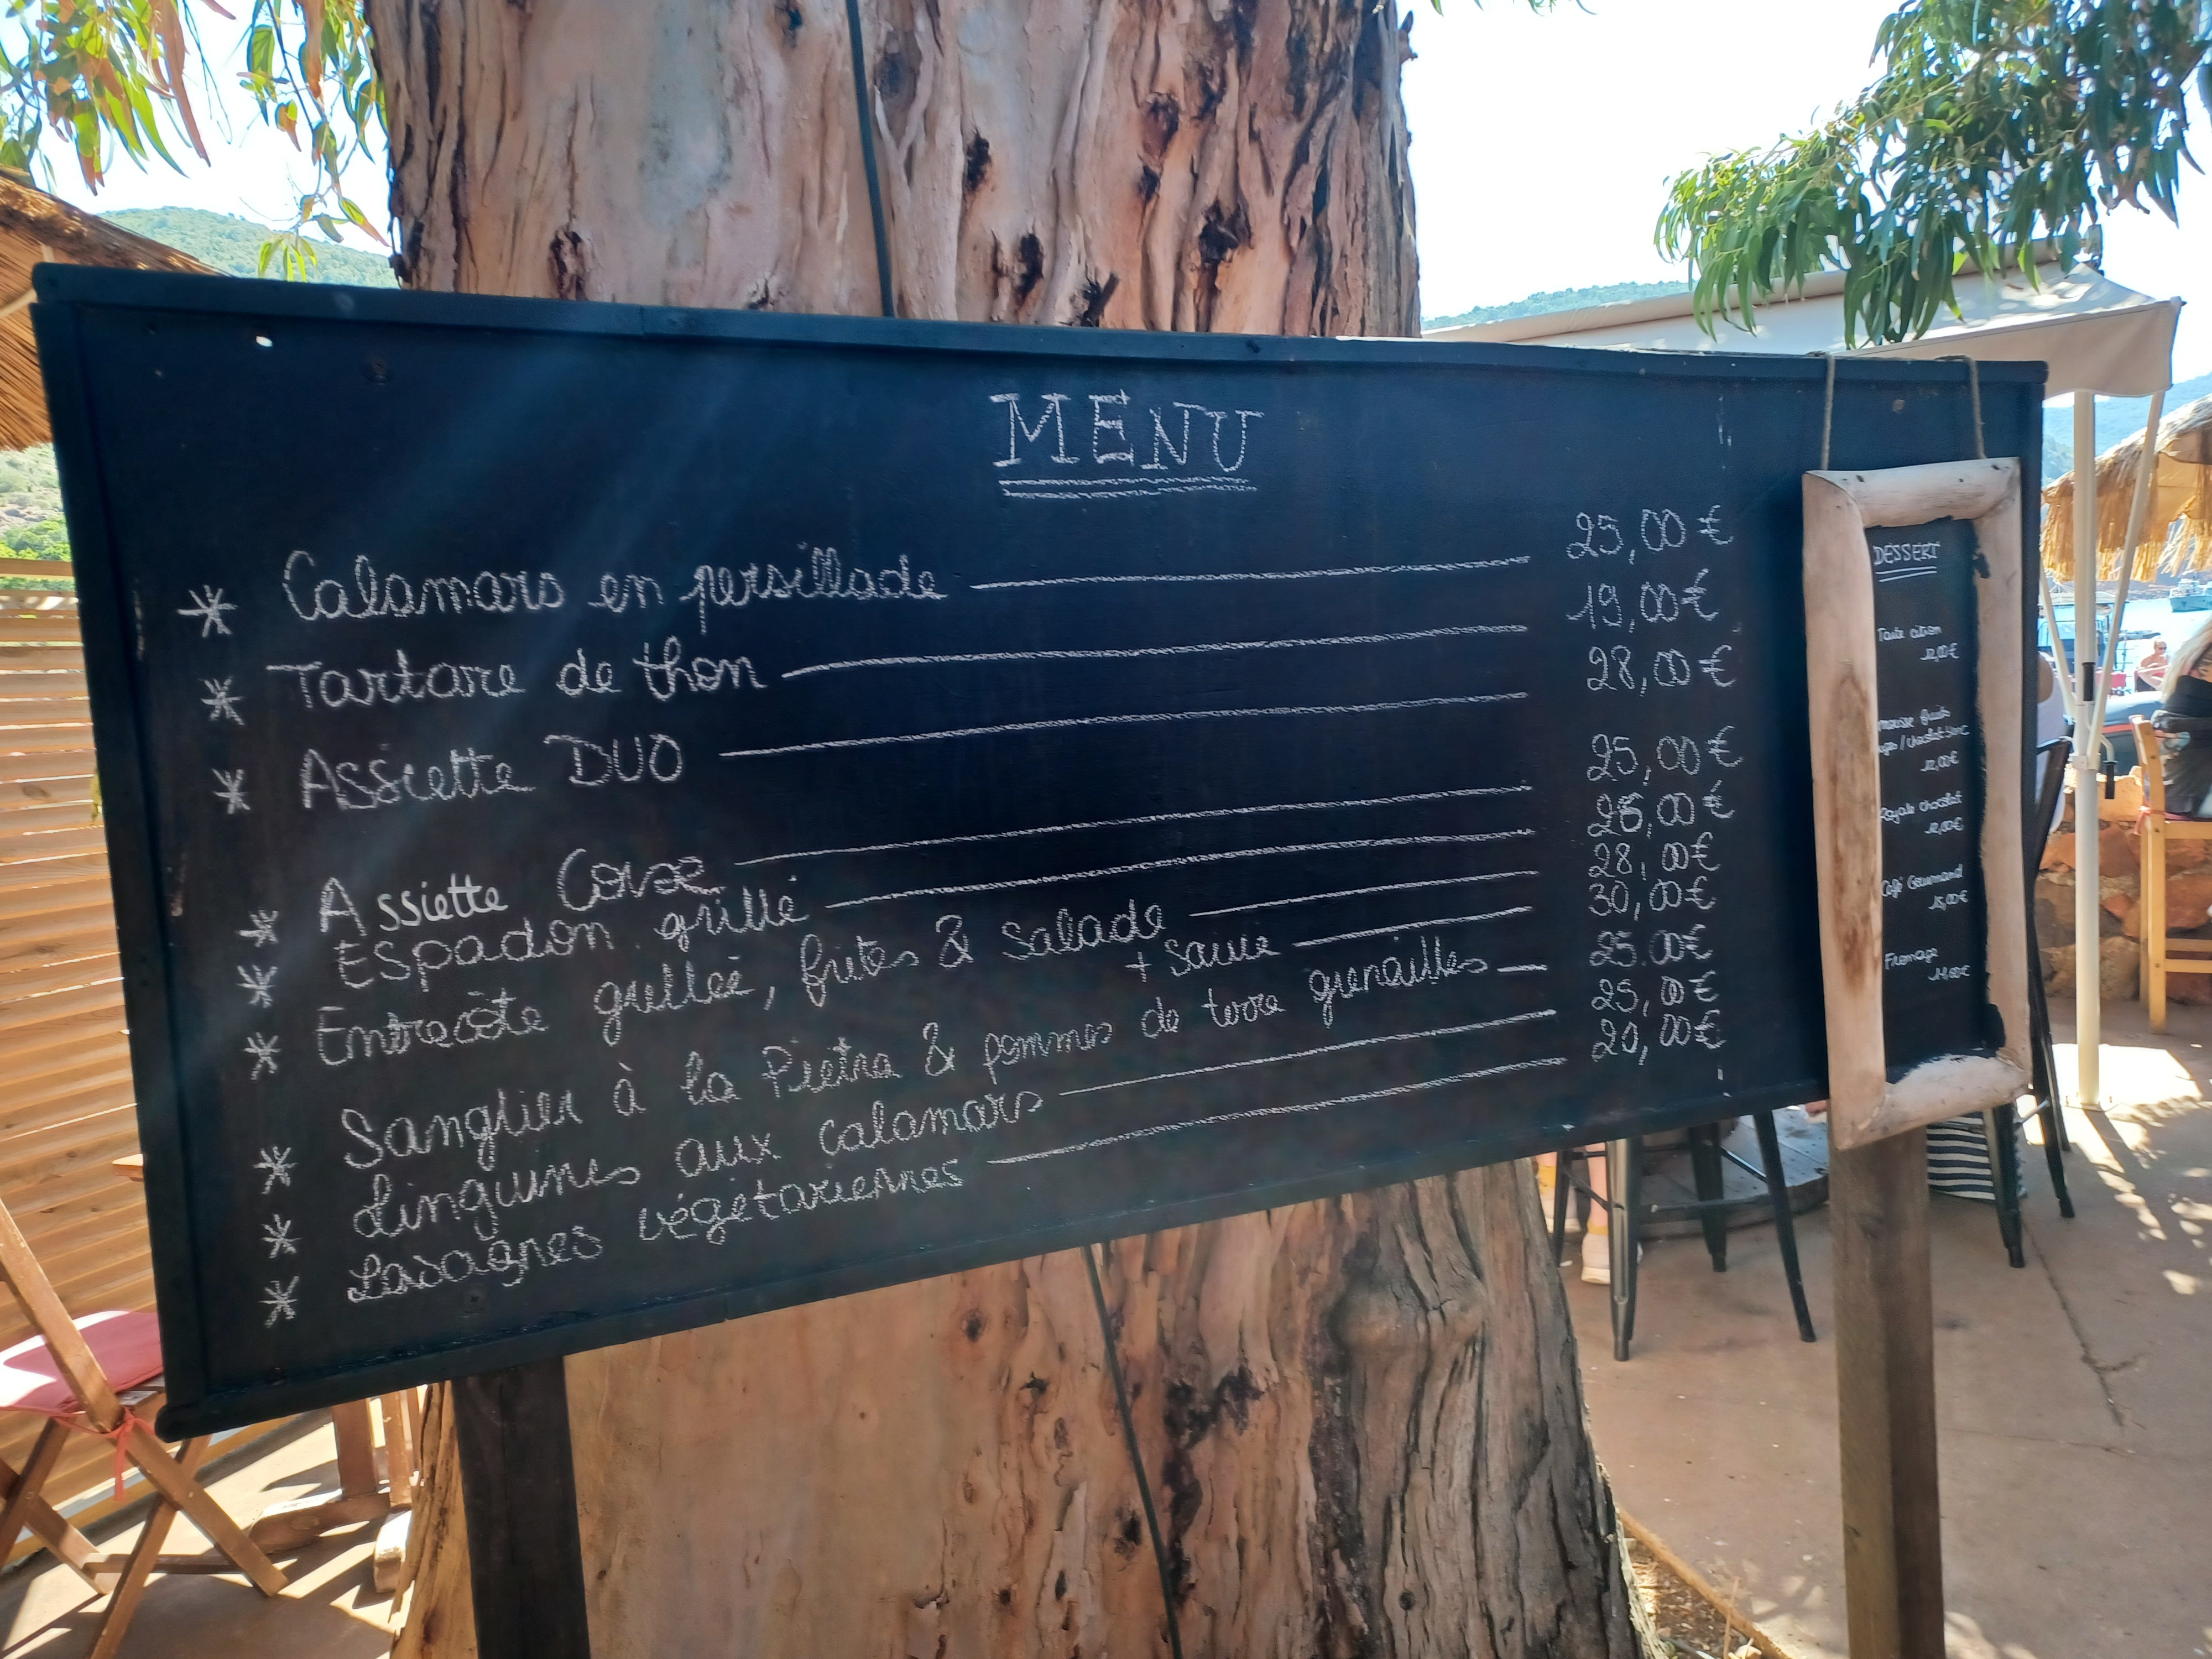 MENU
* Calamars en persillade 25,00 €
* Tartare de thon 19,00 €
* Assiette DUO 28,00 €
* Assiette Corse 25,00 €
* Espadon grillé 26,00 €
* Entrecôte grillée, frites & salade 28,00 €
+ sauce 30,00 €
* Sanglier à la Pietra & pommes de terre grenailles 25.00 €
* Linguines aux calamars 25,00 €
* Lasagnes végétariennes 20,00 €
DESSERT
Tarte citron
12,00 €
mousse fruits
/ chocolat
12,00 €
Royale chocolat
12,00 €
Café Gourmand
15,00 €
Fromage